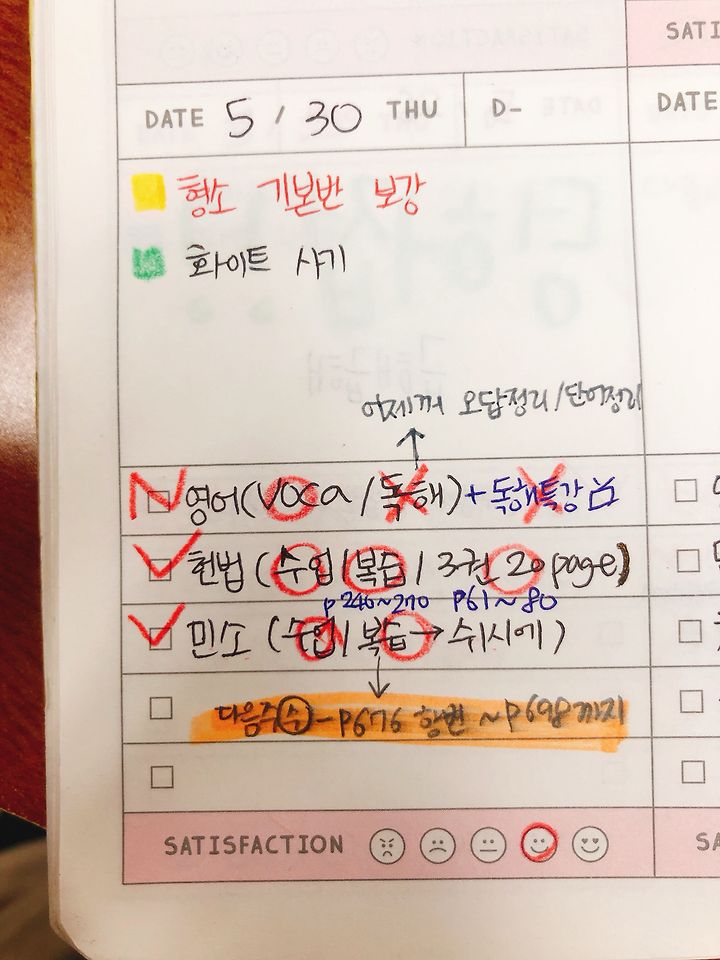 SATI
DATE 5 / 30 THU D- DATE
형소 기본반 보강
화이트 사기
어제꺼 오답정리/단어정리
영어(VOCA / 독해)+독해특강
헌법 (수업 / 복습 / 3권 20page)
p240~270 P61~80
민소 (수업 / 복습→ 쉬시에)
다음주(수)-P676 ~P698까지
SATISFACTION SA